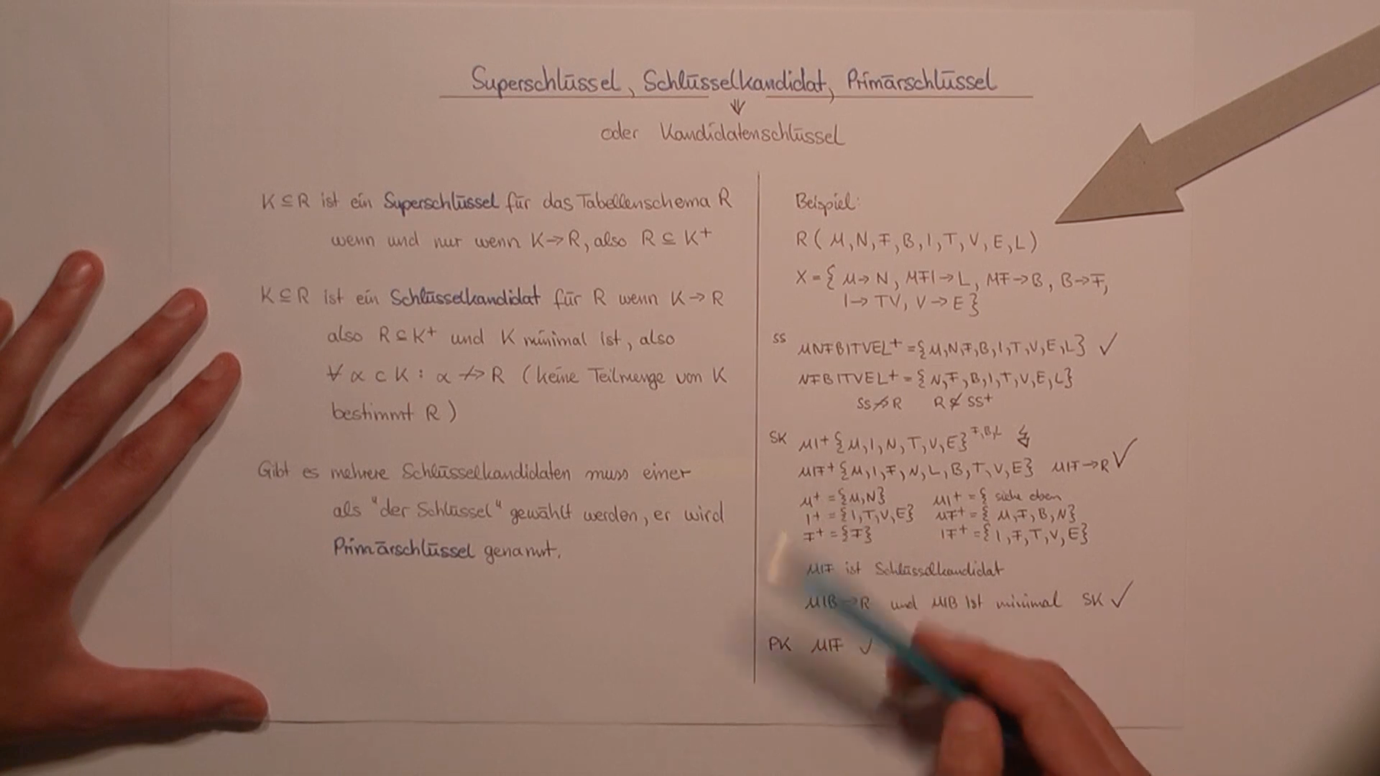 Superschlüssel, Schlüsselkandidat, Primärschlüssel
⇓
oder Kandidatenschlüssel
K ⊆ R ist ein Superschlüssel für das Tabellenschema R
wenn und nur wenn K → R, also R ⊆ K⁺
K ⊆ R ist ein Schlüsselkandidat für R wenn K → R
also R ⊆ K⁺ und K minimal ist, also
∀ α ⊂ K : α ↛ R (keine Teilmenge von K
bestimmt R)
Gibt es mehrere Schlüsselkandidaten muss einer
als "der Schlüssel" gewählt werden, er wird
Primärschlüssel genannt.
Beispiel:
R ( M, N, F, B, I, T, V, E, L )
X = { M → N, MFI → L, MF → B, B → F,
I → TV, V → E }
SS MNFBITVEL⁺ = {M, N, F, B, I, T, V, E, L} ✓
NFBITVEL⁺ = {N, F, B, I, T, V, E, L}
SS ↛ R R ⊄ SS⁺
SK MI⁺ {M, I, N, T, V, E} F, B, L ↯
MIF⁺ {M, I, F, N, L, B, T, V, E} MIF → R ✓
M⁺ = {M, N} MI⁺ = { siehe oben
I⁺ = {I, T, V, E} MF⁺ = { M, F, B, N}
F⁺ = {F} IF⁺ = {I, F, T, V, E}
MIF ist Schlüsselkandidat
MIB → R und MIB ist minimal SK ✓
PK MIF ✓